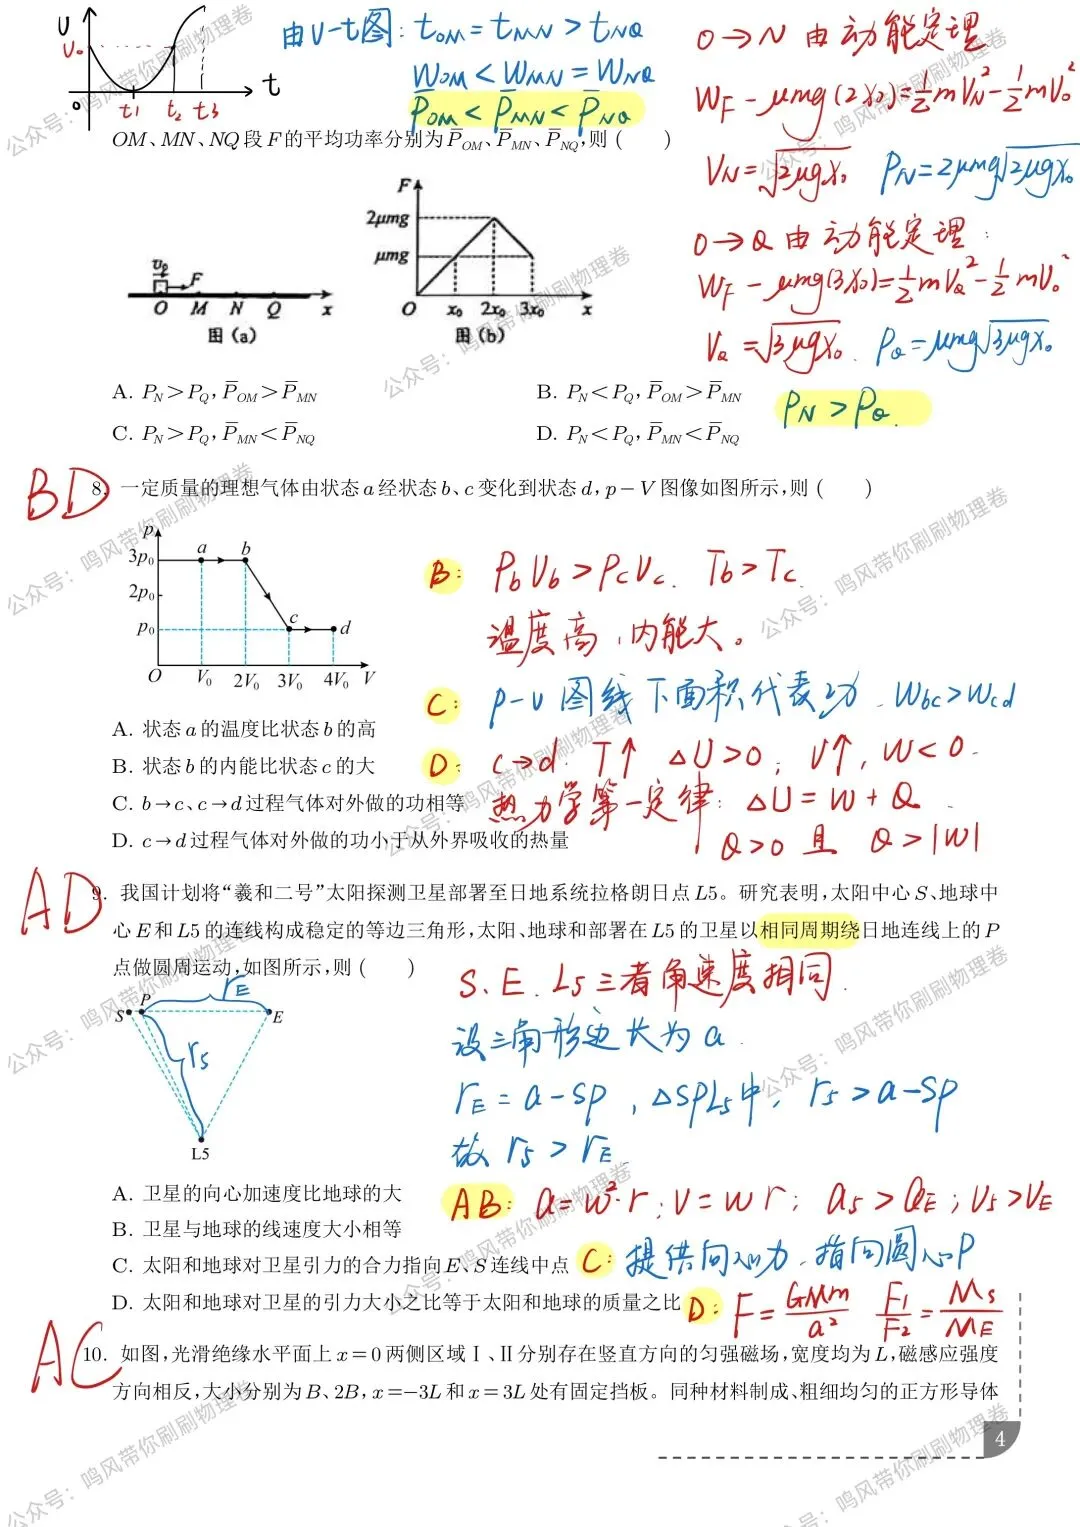 U
U₀
0
t1 t₂ t3
t
由U-t图: tOM = tMN > tNQ
WOM < WMN = WNQ
P̄OM < P̄MN < P̄NQ
OM、MN、NQ段F的平均功率分别为P̄OM、P̄MN、P̄NQ,则 (  )
O→N 由动能定理
WF - μmg(2x₀) = ½mVN² - ½mV₀²
VN = √2μgx₀ PN = 2μmg√2μgx₀
O→Q 由动能定理:
WF - μmg(3x₀) = ½mVQ² - ½mV₀²
VQ = √3μgx₀. PQ = μmg√3μgx₀.
PN > PQ.
v₀
F
O M N Q x
图 (a)
F
2μmg
μmg
O x₀ 2x₀ 3x₀ x
图 (b)
A. PN > PQ, P̄OM > P̄MN
B. PN < PQ, P̄OM > P̄MN
C. PN > PQ, P̄MN < P̄NQ
D. PN < PQ, P̄MN < P̄NQ
BD
8. 一定质量的理想气体由状态a经状态b、c变化到状态d, p-V图像如图所示,则 (  )
p
3p₀
2p₀
p₀
a b
c d
O V₀ 2V₀ 3V₀ 4V₀ V
B: PbVb > PcVc. Tb > Tc.
温度高,内能大。
C: p-v图线下面积代表功. Wbc > Wcd
D: c→d. T↑ ΔU>0; V↑, W<0.
热力学第一定律: ΔU = W + Q.
Q>0 且 Q>|W|
A. 状态a的温度比状态b的高
B. 状态b的内能比状态c的大
C. b→c、c→d过程气体对外做的功相等
D. c→d过程气体对外做的功小于从外界吸收的热量
AD
9. 我国计划将“羲和二号”太阳探测卫星部署至日地系统拉格朗日点L5。研究表明,太阳中心S、地球中
心E和L5的连线构成稳定的等边三角形,太阳、地球和部署在L5的卫星以相同周期绕日地连线上的P
点做圆周运动,如图所示,则 (  )
rE
S P E
r5
L5
S、E、L5三者角速度相同.
设三角形边长为a.
rE = a - SP, △SPL5中, r5 > a - SP
故 r5 > rE
A. 卫星的向心加速度比地球的大
B. 卫星与地球的线速度大小相等
C. 太阳和地球对卫星引力的合力指向E、S连线中点
D. 太阳和地球对卫星的引力大小之比等于太阳和地球的质量之比
AB: a = w²·r; v = wr; a5 > aE; v5 > vE
C: 提供向心力.指向圆心P
D: F = GMm/a² F1/F2 = Ms/ME
AC
10. 如图,光滑绝缘水平面上x=0两侧区域Ⅰ、Ⅱ分别存在竖直方向的匀强磁场,宽度均为L,磁感应强度
方向相反,大小分别为B、2B, x=-3L和x=3L处有固定挡板。同种材料制成、粗细均匀的正方形导体
4
公众号: 鸣风带你刷刷物理卷